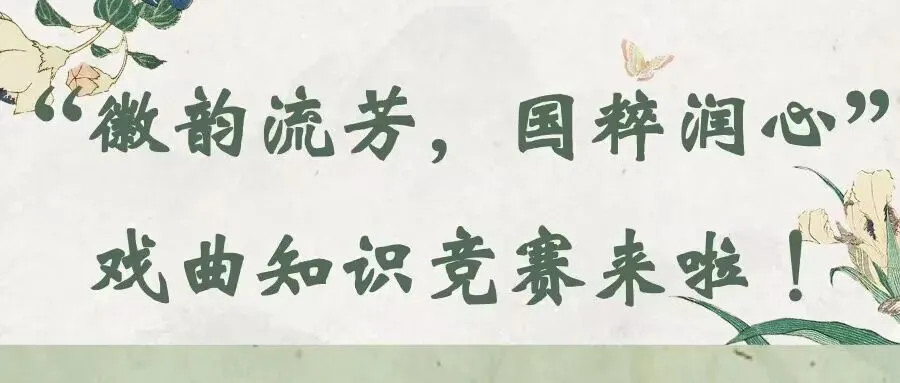 “徽韵流芳，国粹润心”
戏曲知识竞赛来啦！